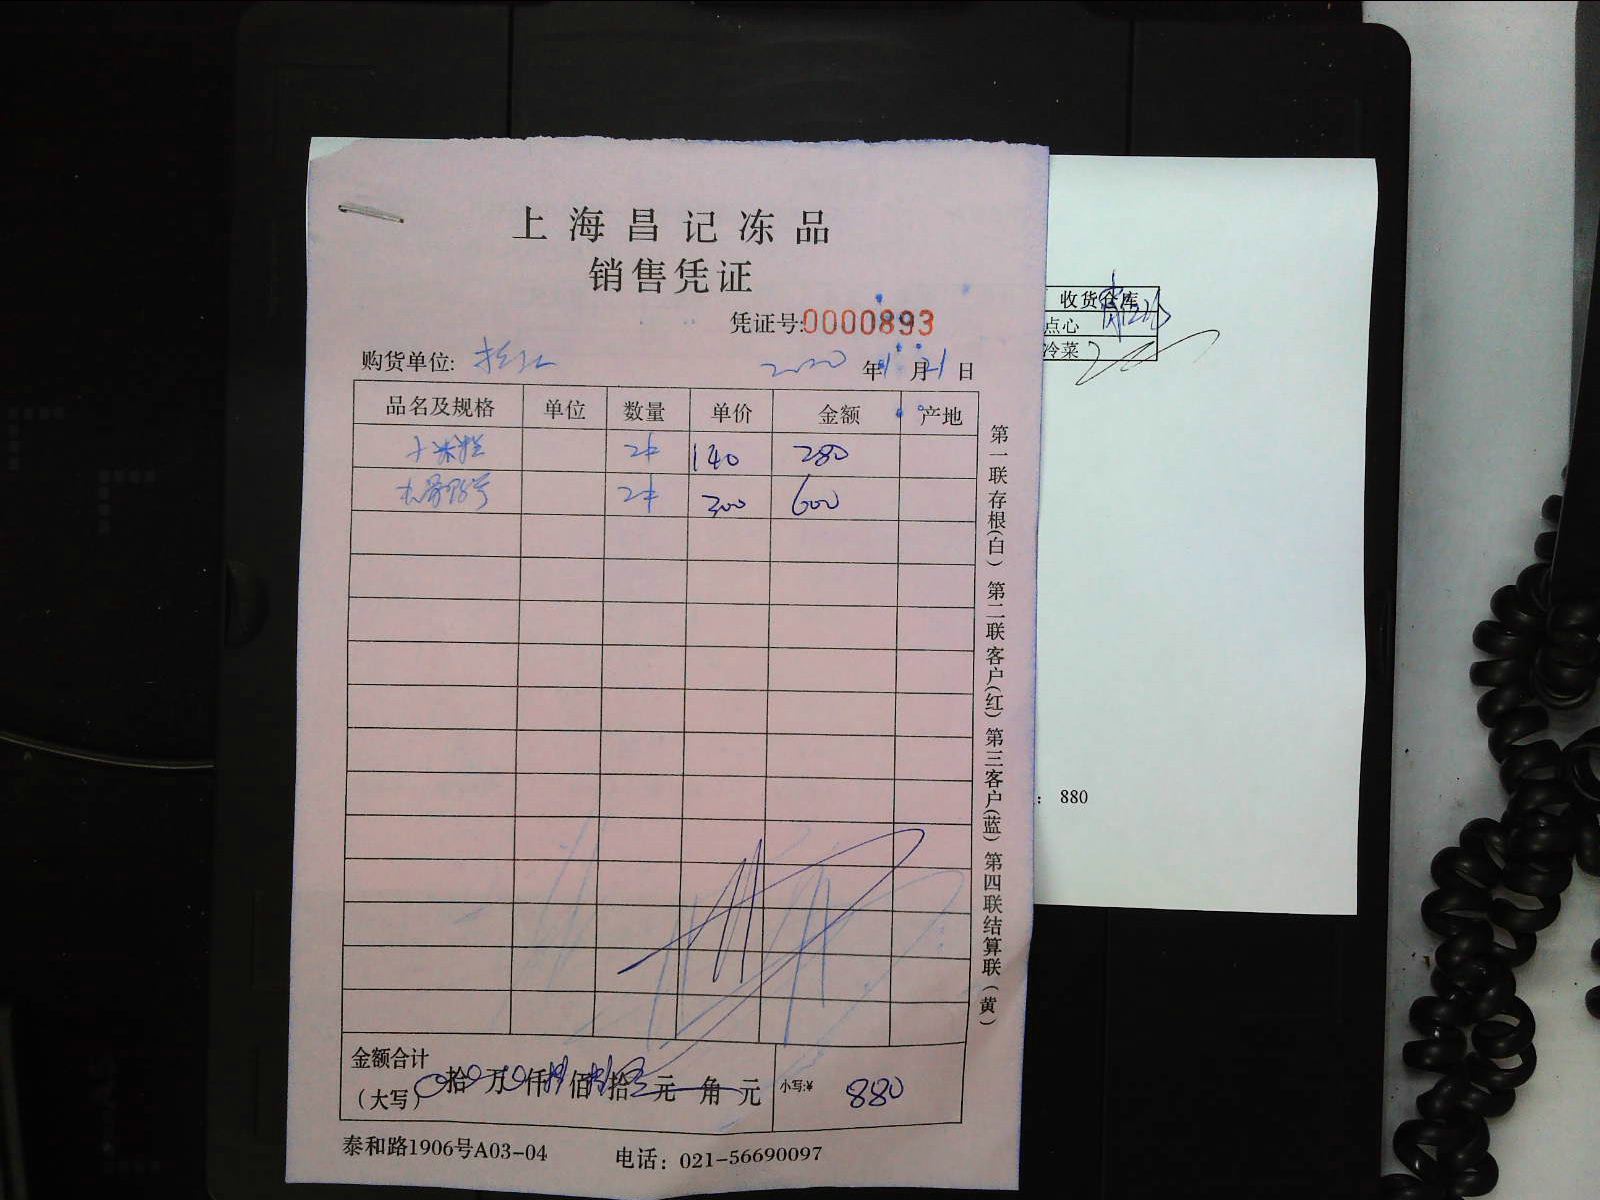 上海昌记冻品
销售凭证
凭证号:0000893
购货单位:
2020 年 1 月 21 日
品名及规格 单位 数量 单价 金额 产地
2件 140 280
2件 300 600
金额合计
(大写) 0拾0万0仟捌佰捌拾零元 角 元 小写:¥ 880
泰和路1906号A03-04 电话：021-56690097
第一联存根(白) 第二联客户(红) 第三客户(蓝) 第四联结算联(黄)
收货仓库
点心
冷菜
: 880